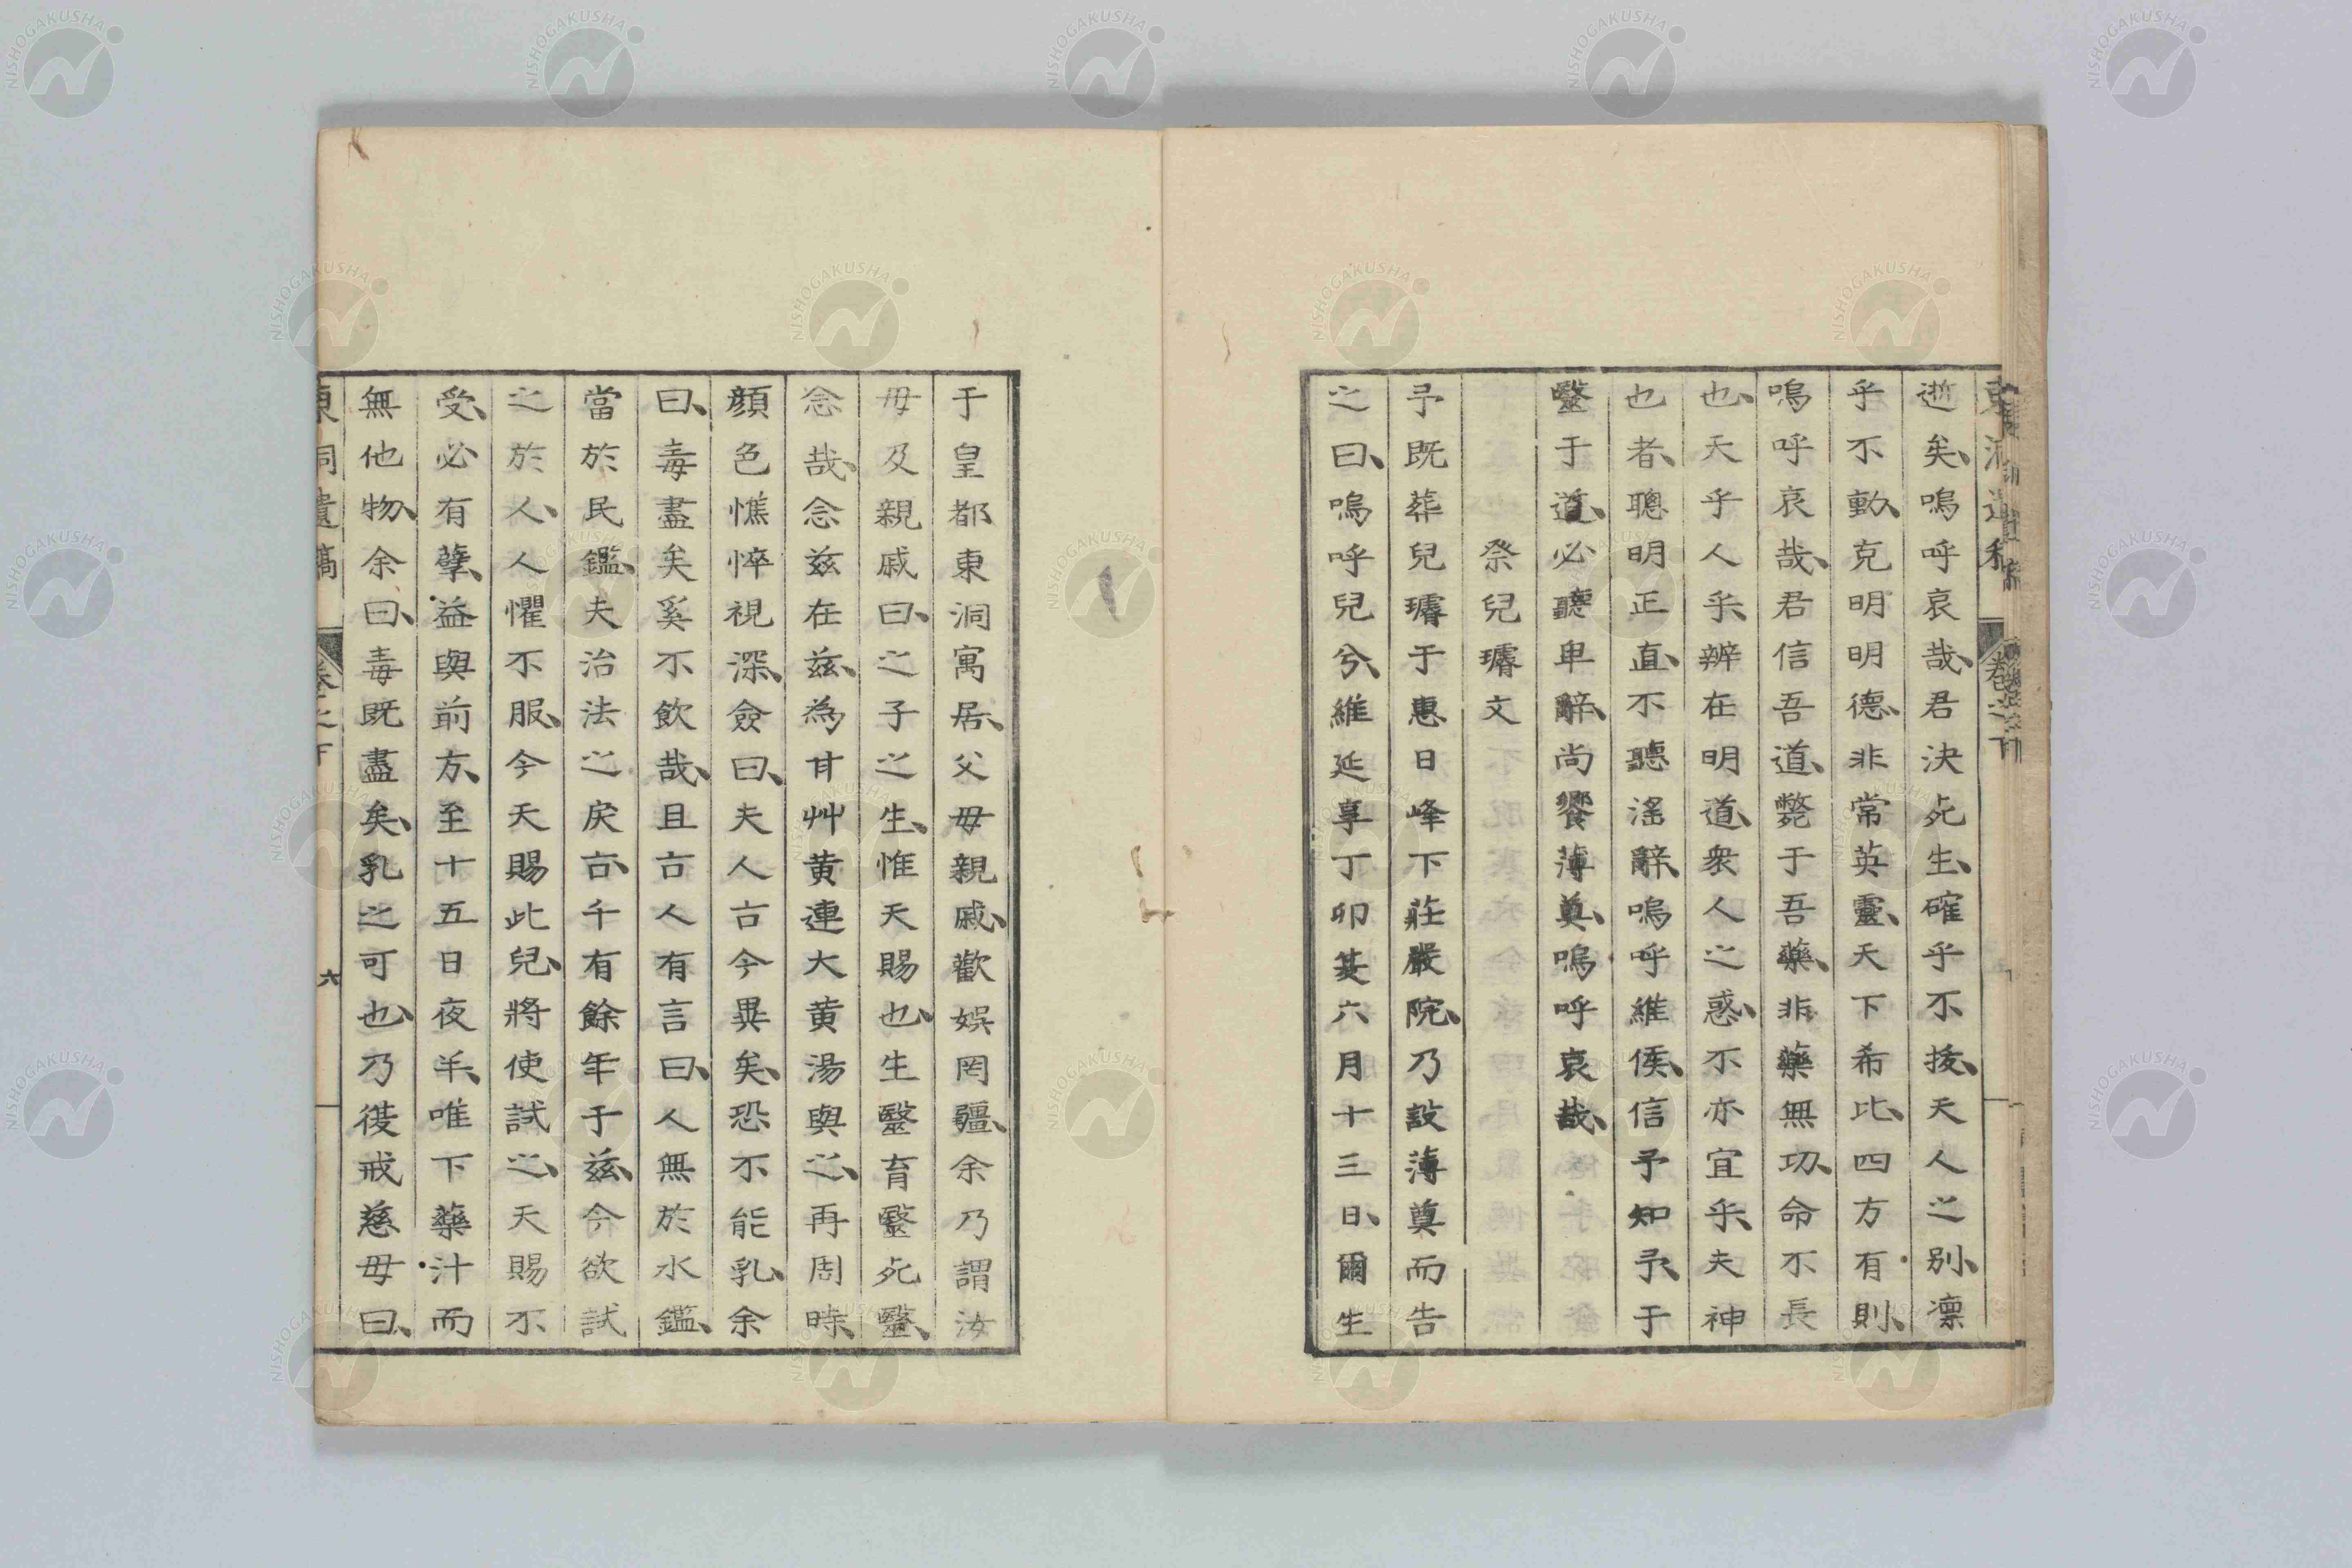 逝矣、嗚呼哀哉、君決死生、確乎不拔、天人之別、凛
乎不動、克明明德、非常英靈、天下希比、四方有則、
嗚呼哀哉、君信吾道、斃于吾藥、非藥無功、命不長
也、天乎人乎、辨在明道、衆人之惑、不亦宜乎、夫神
也者、聰明正直、不聽滛辭、嗚呼維侯、信予知予、于
毉于道、必聽卑辭、尚饗薄奠、嗚呼哀哉、
祭兒璿文
予既葬兒璿于惠日峰下莊嚴院、乃設薄奠而告
之曰、嗚呼兒兮、維延享丁卯若六月十三日、爾生
于皇都東洞寓居、父母親戚、歡娯罔疆、余乃謂汝
母及親戚曰、之子之生、惟天賜也、生毉育毉死毉、
念哉、念兹在兹、為甘艸黄連大黄湯與之、再周時、
顔色憔悴視深、僉曰、夫人古今異矣、恐不能乳、余
曰、毒盡矣奚不飲哉、且古人有言曰、人無於水鑑、
當於民鑑、夫治法之戾古、千有餘年于兹、今欲試
之於人、人懼不服、今天賜此兒、將使試之、天賜不
受、必有孽、益與前方、至十五日夜半、唯下藥汁而
無他物、余曰、毒既盡矣、乳之可也、乃復戒慈母曰、
東洞遺稿
卷之下
六